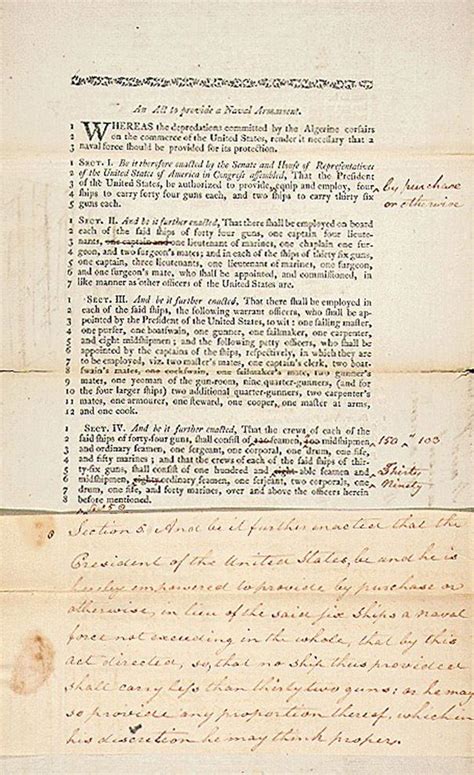 An Act to provide a Naval Armament.
1 WHEREAS the depredations committed by the Algerine corsairs
2 on the commerce of the United States, render it necessary that a
3 naval force should be provided for its protection.
1 SECT. I. Be it therefore enacted by the Senate and House of Representatives
2 of the United States of America in Congress assembled, That the President
3 of the United States, be authorized to provide, equip and employ, four
4 ships to carry forty four guns each, and two ships to carry thirty six
5 guns each.
by purchase
or otherwise
1 SECT. II. And be it further enacted, That there shall be employed on board
2 each of the said ships of forty four guns, one captain four lieute-
3 nants, one captain and one lieutenant of marines, one chaplain one sur-
4 geon, and two surgeon's mates; and in each of the ships of thirty six guns,
5 one captain, three lieutenants, one lieutenant of marines, one surgeon,
6 and one surgeon's mate, who shall be appointed, and commissioned, in
7 like manner as other officers of the United States are.
1 SECT. III. And be it further enacted, That there shall be employed, in
2 each of the said ships, the following warrant officers, who shall be ap-
3 pointed by the President of the United States, to wit: one sailing master,
4 one purser, one boatswain, one gunner, one sailmaker, one carpenter,
5 and eight midshipmen; and the following petty officers, who shall be
6 appointed by the captains of the ships, respectively, in which they are
7 to be employed, viz. two master's mates, one captain's clerk, two boat-
8 swain's mates, one cockswain, one sailmaker's mate, two gunner's
9 mates, one yeoman of the gun-room, nine quarter-gunners, (and for
10 the four larger ships) two additional quarter-gunners, two carpenter's
11 mates, one armourer, one steward, one cooper, one master at arms,
12 and one cook.
1 SECT. IV. And be it further enacted, That the crews of each of the
2 said ships of forty-four guns, shall consist of seamen, midshipmen
3 and ordinary seamen, one sergeant, one corporal, one drum, one fife,
4 and fifty marines; and that the crews of each of the said ships of thir-
5 ty-six guns, shall consist of one hundred and eight able seamen and
6 midshipmen, eighty ordinary seamen, one serjeant, two corporals, one
7 drum, one fife, and forty marines, over and above the officers herein
8 before mentioned.
150 103
Thirty
Ninety
Section 5. And be it further enacted that the
President of the United States, be and he is
hereby empowered to provide by purchase or
otherwise, in lieu of the said six Ships a naval
force not exceeding in the whole, that by this
act directed, so, that no ship thus provided
shall carry less than thirty two guns: or he may
so provide any proportion thereof, which in
his discretion he may think proper.